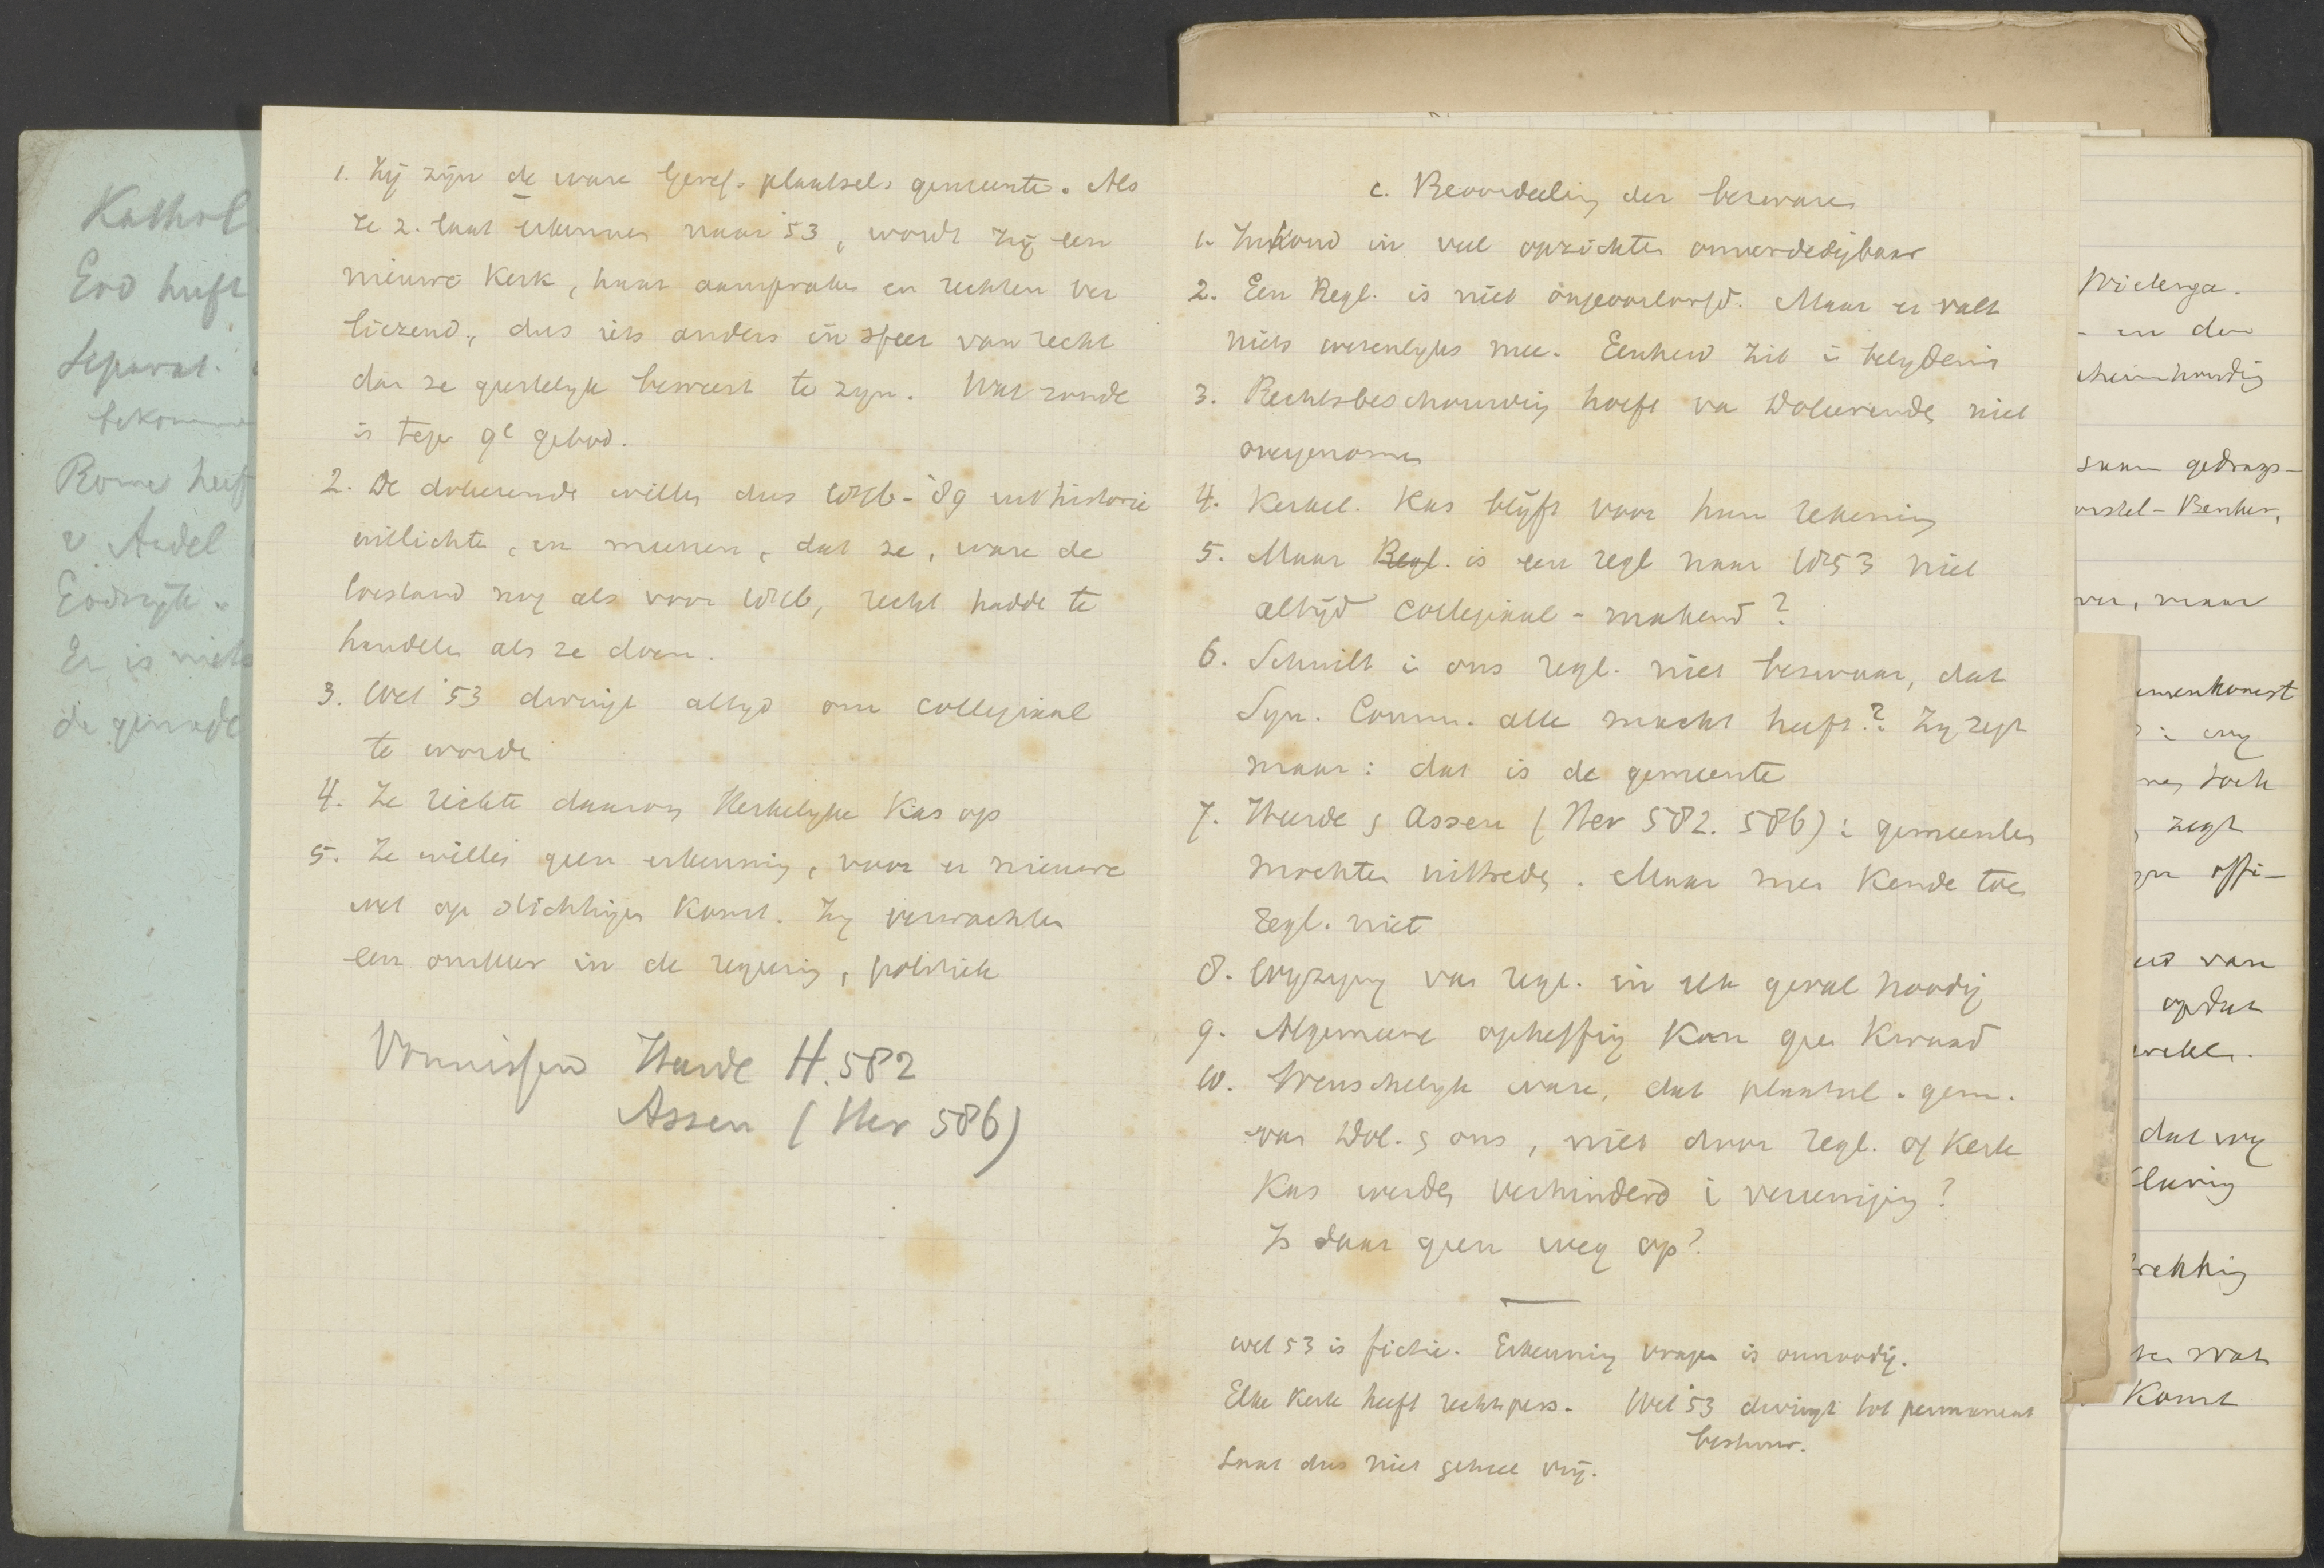 Kathol
Eed heeft
Separat.
bekomm
Rome heef
v. Andel
Er is niets
de genade
1. Zij zijn de ware Geref. plaatsel. gemeente. Als
ze z. laat erkennen naar '53, wordt zij een
nieuwe Kerk, haar aanspraken en rechten ver
liezend, dus iets anders in sfeer van recht
dan ze geestelijk beweert te zijn. Wat zonde
is tegen 9e gebod.
2. De doleerende willen dus 1816-'89 uit historie
uitlichten, en meenen, dat ze, ware de
toestand nog als voor 1816, recht hadde te
handelen als ze doen.
3. Wet '53 dwingt altijd om collegiaal
te worde
4. Ze richtte daarom Kerkelijke Kas op
5. Ze willen geen erkenning, voor er nieuwe
wet op stichtingen komt. Zij verwachten
een omkeer in de regering, politiek
Vonnissen Heerde H. 582
Assen (Her 586)
c. Beoordeeling der bezwaren
1. Inhoud in veel opzichten onverdedigbaar
2. Een Regl. is niet ongeoorloofd. Maar er valt
niets wezenlijks mee. Eenheid zit i belijdenis
3. Rechtsbeschouwing hoeft va Doleerende niet
overgenomen
4. Kerkel. Kas blijft voor hun rekening
5. Maar Regl. is een regl naar W53 niet
altijd collegiaal - makend?
6. Schuilt i ons regl. niet bezwaar, dat
Syn. Comm. alle macht heeft? Zij zegt
maar: dat is de gemeente
7. Heerde & Assen (Her 582. 586): gemeenten
mochten uittreden. Maar men kende toen
regl. niet
8. Wijziging van regl. in elk geval noodig
9. Algemeene opheffing kan geen kwaad
10. Wenschelijk ware, dat plaatsel. gem.
van Dol. & ons, niet door regl. of Kerk
Kas werden verhinderd i vereeniging?
Is daar geen weg op?
wet 53 is fictie. Erkenning vragen is onnoodig.
Elke Kerk heeft rechtspers. Wet '53 dwingt tot permanent
bestuur.
Laat dus niet geheel vrij.
Wielenga.
- en den
saam gedrags-
orstel - Benker,
ver, maar
menkomst
i wij
toch
zegt
offi-
van
opdat
dat wij
rekking
wat
komt